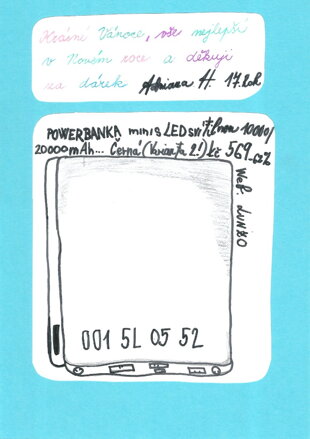 Krásné Vánoce, vše nejlepší
v Novém roce a děkuji
za dárek Adriana H. 17.let
POWERBANKA mini s LED svítilnou 10000/
20000 mAh... Černá (Varianta 2!) kč 569.-CZ
Web. LUNZO
001 5L 05 52